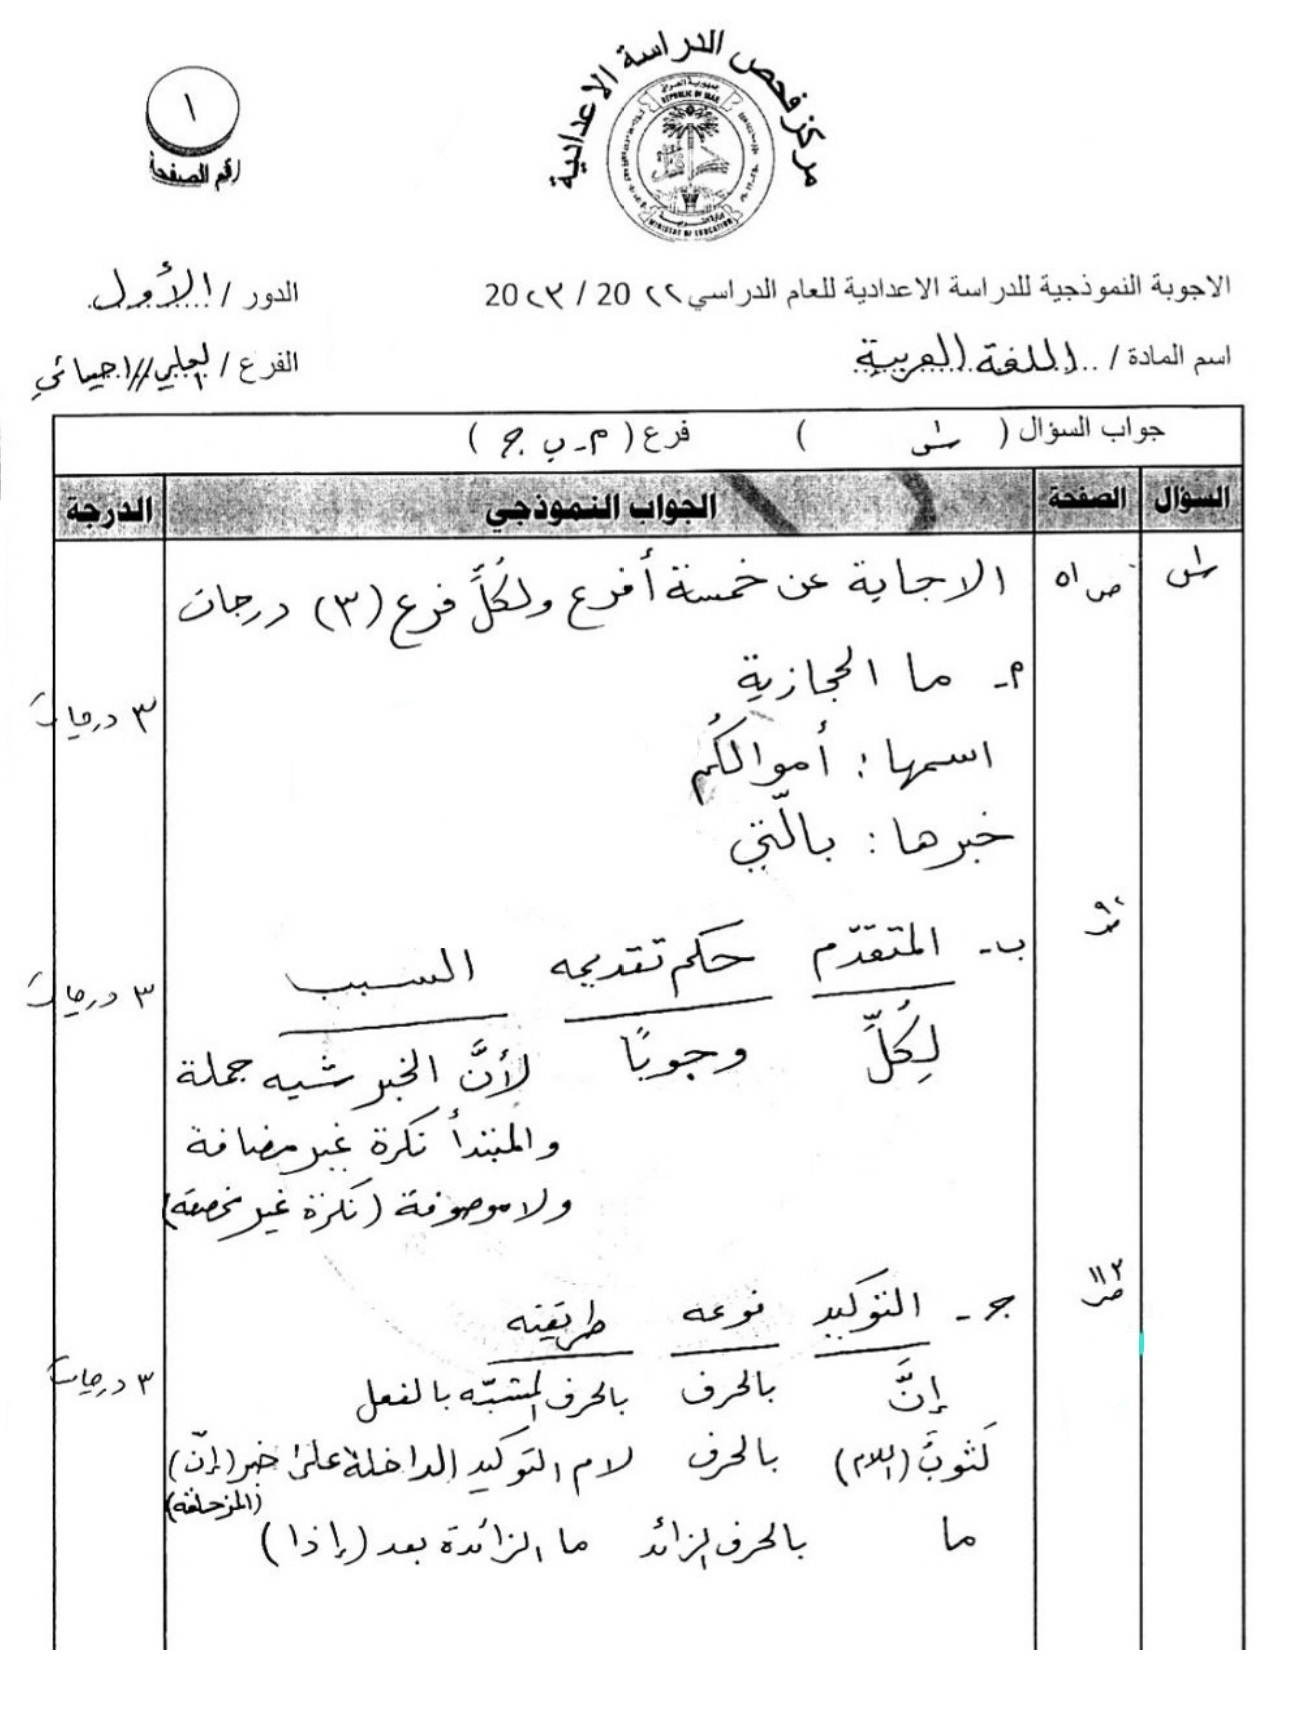 مركز فحص الدراسة الاعدادية
جمهورية العراق
REPUBLIC OF IRAQ
MINISTRY OF EDUCATION
١
رقم الصفحة
الاجوبة النموذجية للدراسة الاعدادية للعام الدراسي ٢٢ 20 / ٢٣ 20
الدور / الأول
اسم المادة / اللغة العربية
الفرع / العلمي / احيائي
جواب السؤال ( س١ ) فرع ( م - ب ج )
السؤال الصفحة الجواب النموذجي الدرجة
س١ ص٥١ الاجابة عن خمسة أفرع ولكلِّ فرع (٣) درجات
م - ما الحجازية
٣ درجات
اسمها : أموالكُم
خبرها : بالّتي
ب - المتقدّم حكم تقديمه السبب
٣ درجات
لِكُلِّ وجوبًا لأنَّ الخبر شبه جملة
والمبتدأ نكرة غير مضافة
ولا موصوفة (نكرة غير مخصصة)
ص١١٢
ج - التوكيد نوعه طريقته
٣ درجات
إنَّ بالحرف بالحرف المشبّه بالفعل
لَثوبُ (اللام) بالحرف لام التوكيد الداخلة على خبر (إنّ)
(المزحلقة)
ما بالحرف الزائد ما الزائدة بعد (إذا)